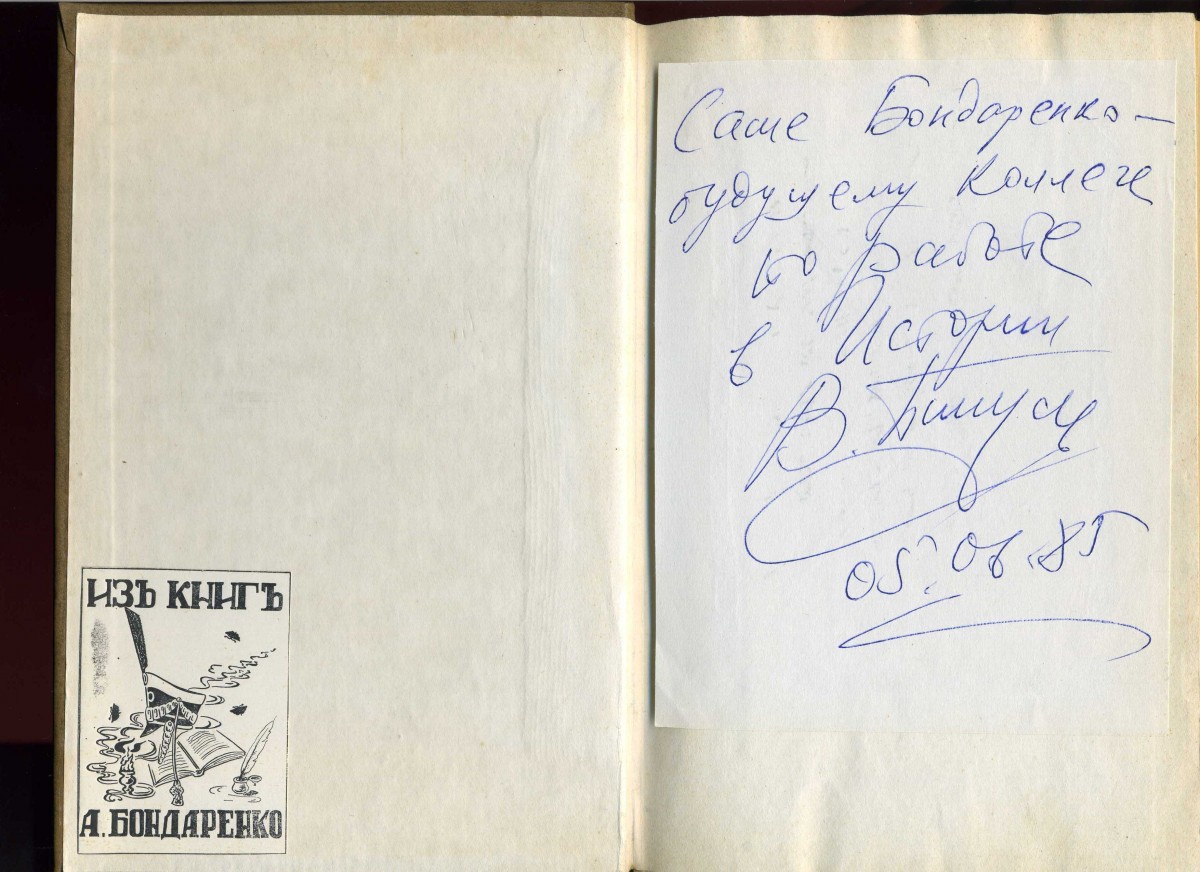 ИЗЪ КНИГЪ
А. БОНДАРЕНКО
Саше Бондаренко —
будущему коллеге
по работе
в Истории
В. Пикуль
05. 06. 85